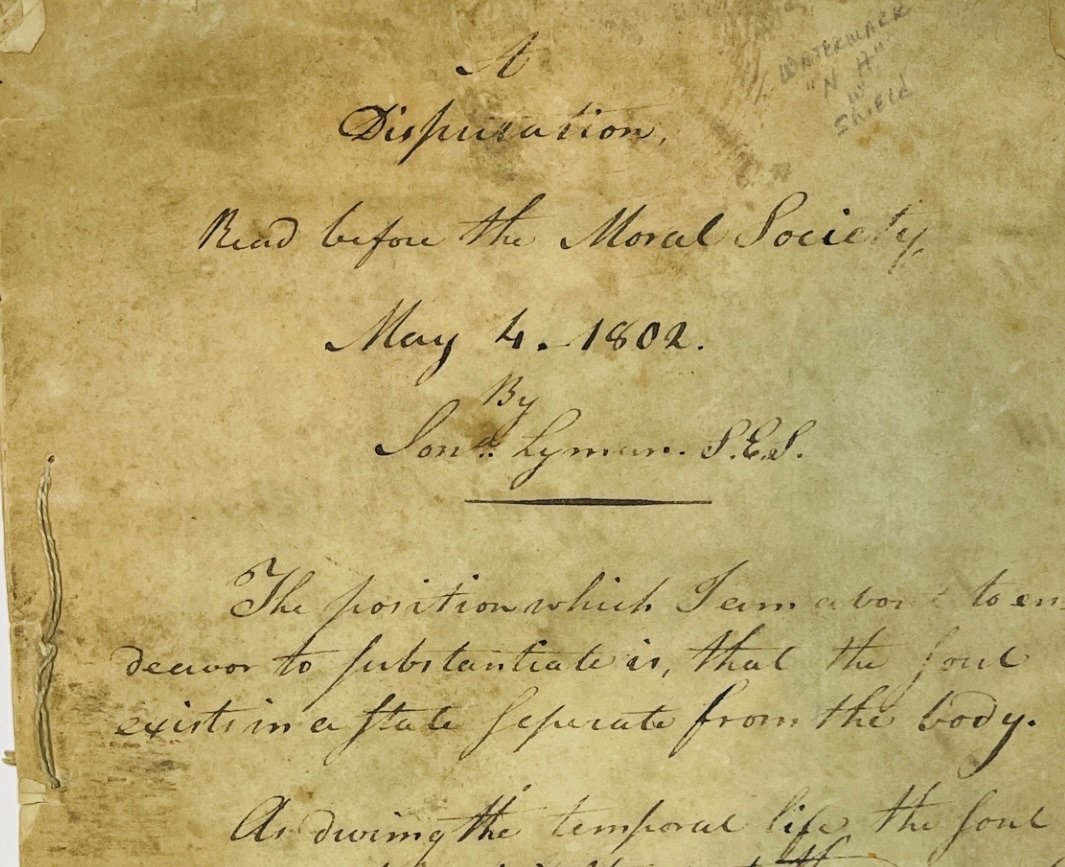 A
Disputation,
Read before the Moral Society,
May 4. 1802.
By
Jonª. Lyman. S.E.S.
The position which I am about to en-
deavor to substantiate is, that the soul
exists in a state seperate from the body.
As during the temporal life the soul
WATERMARK
"N H"
W
SHIELD